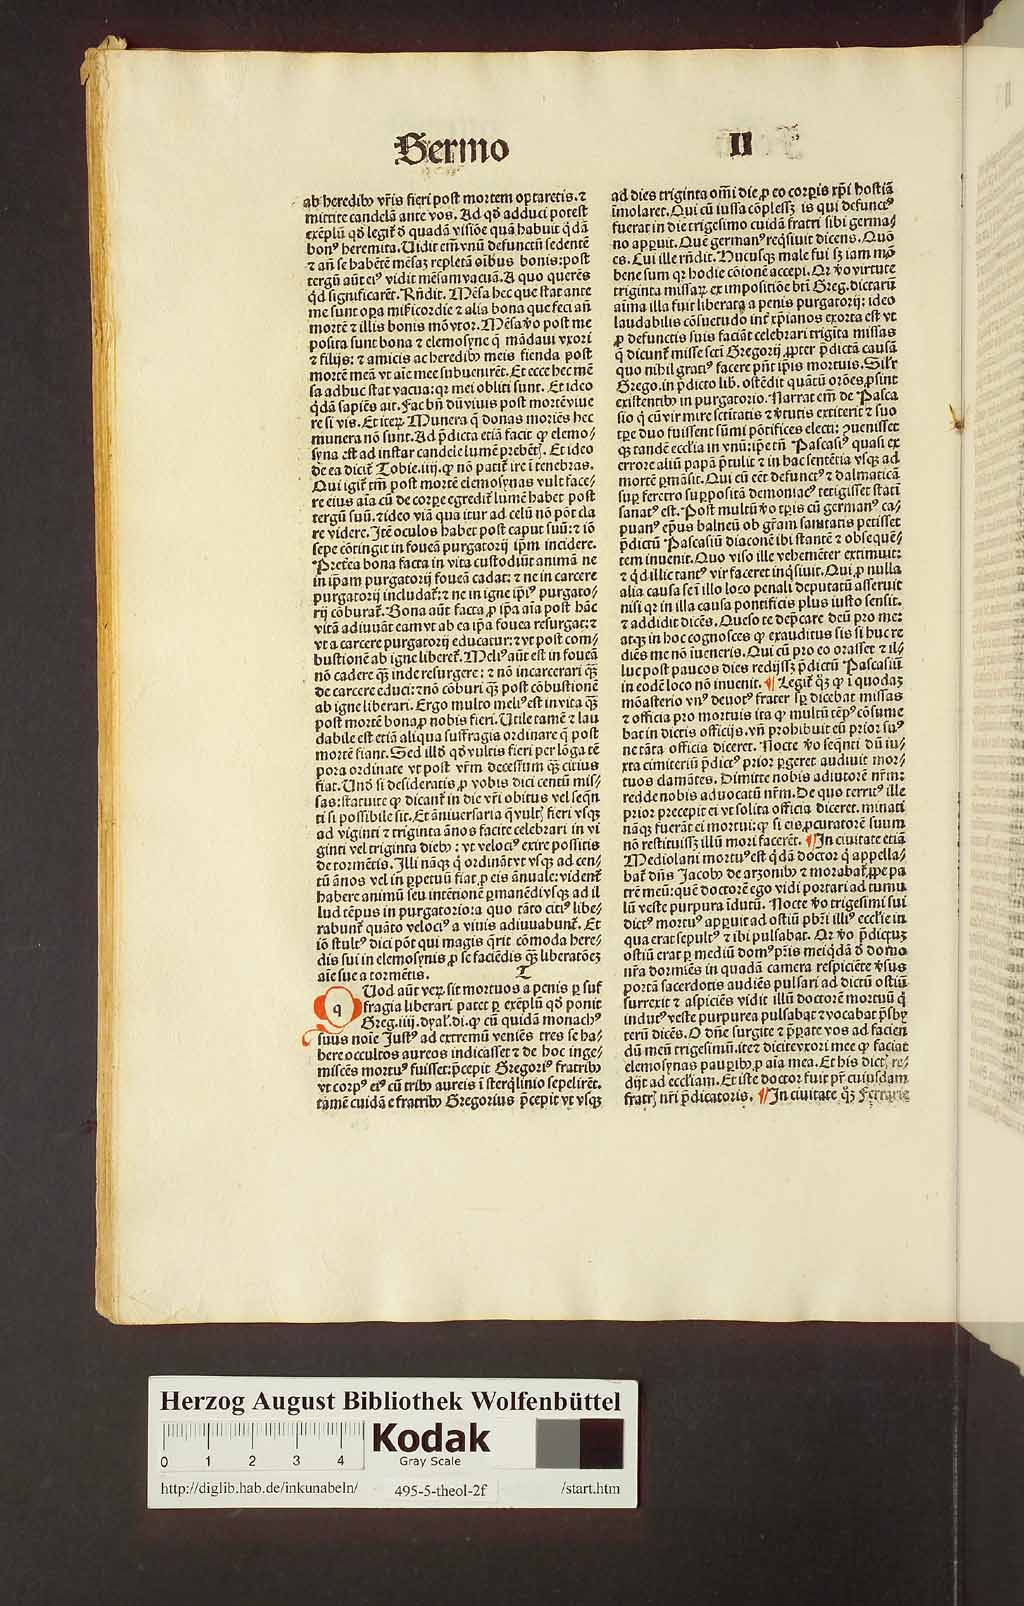 Sermo
II
ab heredibꝰ vr̄is fieri post mortem optaretis. ⁊
mittite candelā ante vos. Ad qd̄ adduci potest
exēplū qd̄ legit᷑ d̄ quadā visiōe quā habuit q̄dā
bonꝰ heremita. Uidit em̄ vnū defunctū sedentē
⁊ an̄ se habētē mēsaȝ repletā oībus bonis: post
tergū aūt eiꝰ vidit mēsam vacuā. A quo querēs
qd̄ significarēt. Rn̄dit. Mēsa hec que stat ante
me sunt oꝑa mīcordie ⁊ alia bona que feci an̄
mortē ⁊ illis bonis mō vtor. Mēsa v̄o post me
posita sunt bona ⁊ elemosyne q̄ mādaui vxori
⁊ filijs: ⁊ amicis ac heredibꝰ meis fienda post
mortē meā vt aīe mee subuenirēt. Et ecce hec mē
sa adhuc stat vacua: qꝛ mei obliti sunt. Et ideo
q̄dā sapiēs ait. Fac bn̄ dū viuis post mortē viue
re si vis. Et iteꝝ Munera q̄ donas moriēs hec
munera nō sunt. Ad p̄dicta etiā facit ꝙ elemo/
syna est ad instar candele lumē prebēt᷑. Et ideo
de ea dicit᷑ Tobie .iiij. ꝙ nō patit᷑ ire ī tenebras.
Qui igit᷑ tm̄ post mortē elemosynas vult face/
re eius aīa cū de corꝑe egredit᷑ lumē habet post
tergū suū. ⁊ ideo viā qua itur ad celū nō pōt cla
re videre. Itē oculos habet post caput suū: ⁊ iō
sepe cōtingit in foueā purgatorij ip̄m incidere.
Pret̄ea bona facta in vita custodiūt animā ne
in ip̄am purgatorij foueā cadat: ⁊ ne in carcere
purgatorij includat᷑: ⁊ ne in igne ip̄iꝰ purgato/
rij cōburat᷑. Bona aūt facta ꝓ ip̄a aīa post hāc
vitā adiuuāt eam vt ab ea ip̄a fouea resurgat: ⁊
vt a carcere purgatorij educatur: ⁊ vt post com/
bustionē ab igne liberet᷑. Meliꝰ aūt est in foueā
nō cadere qȝ inde resurgere: ⁊ nō incarcerari qȝ
de carcere educi: ⁊ nō cōburi qȝ post cōbustionē
ab igne liberari. Ergo multo meliꝰ est in vita qȝ
post mortē bona ꝓ nobis fieri. Utile tamē ⁊ lau
dabile est etiā aliqua suffragia ordinare q̄ post
mortē fiant. Sed illd̄ qd̄ vultis fieri per lōga tē
pora ordinate vt post vr̄m decessum qȝ citius
fiat. Unō si desideratis ꝓ vobis dici centū mis/
sas: statuite ꝙ dicant᷑ in die vr̄i obitus vel seqn̄
ti si possibile sit. Et āniuersaria q̄ vultꝭ fieri vsqȝ
ad viginti ⁊ triginta ānos facite celebrari in vi
ginti vel triginta diebꝰ: vt velociꝰ exire possitis
de tormētis. Illi nāqȝ q̄ ordināt vt vsqȝ ad cen/
tū ānos vel in ꝑpetuū fiat ꝓ eis ānuale: vident᷑
habere animū seu intētionē ꝑmanēdi vsqȝ ad il
lud tēpus in purgatorio: a quo tāto citiꝰ libe/
rabunt᷑ quāto velociꝰ a viuis adiuuabunt᷑. Et
iō stultꝰ dici pōt qui magis q̄rit cōmoda here/
dis sui in elemosynis ꝓ se faciēdis qȝ liberatōeȝ
aīe sue a tormētis. T
q
Uod aūt veꝝ sit mortuos a penis ꝑ suf
fragia liberari patet ꝑ exēplū qd̄ ponit
Greg. iiij. dyal. di. ꝙ cū quidā monachꝰ
suus noīe Justꝰ ad extremū veniēs tres se ha/
bere occultos aureos indicasset ⁊ de hoc inge/
miscēs mortuꝰ fuisset: p̄cepit Gregoriꝰ fratribꝰ
vt corpꝰ eiꝰ cū tribꝰ aureis ī sterq̄linio sepelirēt.
tamē cuidā e fratribꝰ Gregorius p̄cepit vt vsqȝ
ad dies triginta om̄i die ꝓ eo corꝑis xp̄i hostiā
īmolaret. Qui cū iussa cōplessȝ is qui defunctꝰ
fuerat in die trigesimo cuidā fratri sibi germa/
no apꝑuit. Que germanꝰ reqͥsiuit dicens. Quō
es. Cui ille rn̄dit. Hucusqȝ male fui sȝ iam mō
bene sum qꝛ hodie cōionē accepi. Qꝛ v̄o virtute
triginta missaꝝ ex impositiōe bt̄i Greg. dictarū
aīma illa fuit liberata a penis purgatorij: ideo
laudabilis cōsuetudo int᷑ xp̄ianos exorta est vt
ꝓ defunctis suis faciāt celebrari trigīta missas
q̄ dicunt᷑ misse sct̄i Gregorij ꝓpter p̄dictā causā
quo nihil gratiꝰ facere pn̄t ip̄is mortuis. Silr̄
Grego. in p̄dicto lib. ostēdit quātū orōes ꝓsint
existentibꝰ in purgatorio. Narrat em̄ de Pasca
sio q̄ cū vir mire sctītatis ⁊ v̄tutis extiterit ⁊ suo
tꝑe duo fuissent sūmi pōtifices electi: ꝯuenisset
qȝ tandē ecclīa in vnū: ip̄e tn̄ Pascasiꝰ quasi ex
errore aliū papā p̄tulit ⁊ in hac sentētia vsqȝ ad
mortē ꝑmāsit. Qui cū eēt defunctꝰ ⁊ dalmaticā
suꝑ feretro suꝑpositā demoniacꝰ tetigisset statī
sanatꝰ est. Post multū v̄o tꝑis cū germanꝰ ca/
puanꝰ ep̄us balneū ob gr̄am sanitatis petisset
p̄dictū Pascasiū diaconē ibi stantē ⁊ obsequē/
tem inuenit. Quo viso ille vehemēter extimuit:
⁊ qd̄ illic tantꝰ vir faceret inqͥsiuit. Qui ꝓ nulla
alia causa se ī illo loco penali deputatū asseruit
nisi qꝛ in illa causa pontificis plus iusto sensit.
⁊ addidit dicēs. Queso te dep̄care deū ꝓ me:
atqȝ in hoc cognosces ꝙ exauditus sis si huc re
diēs me nō īueneris. Qui cū pro eo orasset ⁊ il/
luc post paucos dies redijssȝ p̄dictū Pascasiū
in eodē loco nō inuenit. ¶ Legit᷑ qͦȝ ꝙ ī quodaȝ
mōasterio vnꝰ deuotꝰ frater sꝑ dicebat missas
⁊ officia pro mortuis ita ꝙ multū tēpꝰ cōsume
bat in dictis officijs. vn̄ prohibuit eū prior suꝰ
ne tāta officia diceret. Nocte v̄o seqn̄ti dū iu/
xta cimiteriū p̄dictꝰ prior ꝑgeret audiuit mor/
tuos clamātes. Dimitte nobis adiutorē nr̄m:
redde nobis aduocatū nr̄m. De quo territꝰ ille
prior precepit ei vt solita officia diceret. minati
nāqȝ fuerāt ei mortui: ꝙ si eis ꝓcuratorē suum
nō restituissȝ illū mori facerēt. ¶ In ciuitate etiā
Mediolani mortuꝰ est q̄dā doctor q̄ appella/
bat᷑ dn̄s Jacobꝰ de arzonibꝰ ⁊ morabat᷑ ꝓpe pa
trē meū: quē doctorē ego vidi portari ad tumu
lū veste purpura īdutū. Nocte v̄o trigesimi sui
dictꝰ mortuꝰ apꝑuit ad ostiū pb̄ri illiꝰ ecclīe in
qua erat sepultꝰ ⁊ ibi pulsabat. Qꝛ v̄o p̄dictuȝ
ostiū erat ꝑ mediū domꝰ pr̄is mei q̄dā d̄ domo
nr̄a dormiēs in quadā camera respiciēte v̄sus
portā sacerdotis audiēs pulsari ad dictū ostiū
surrexit ⁊ aspiciēs vidit illū doctorē mortuū q̄
indutꝰ veste purpurea pulsabat ⁊ vocabat p̄sby
terū dicēs. O dn̄e surgite ⁊ p̄parate vos ad facien
dū meū trigesimū. ite ⁊ dicite vxori mee ꝙ faciat
elemosynas pauꝑibꝰ ꝓ aīa mea. Et his dictꝭ re/
dijt ad eccliam. Et iste doctor fuit pr̄ cuiusdam
fratrꝭ nr̄i p̄dicatoris. ¶ In ciuitate qͦȝ Ferrarie
Herzog August Bibliothek Wolfenbüttel
0 1 2 3 4
Kodak
Gray Scale
http://diglib.hab.de/inkunabeln/ 495-5-theol-2f /start.htm